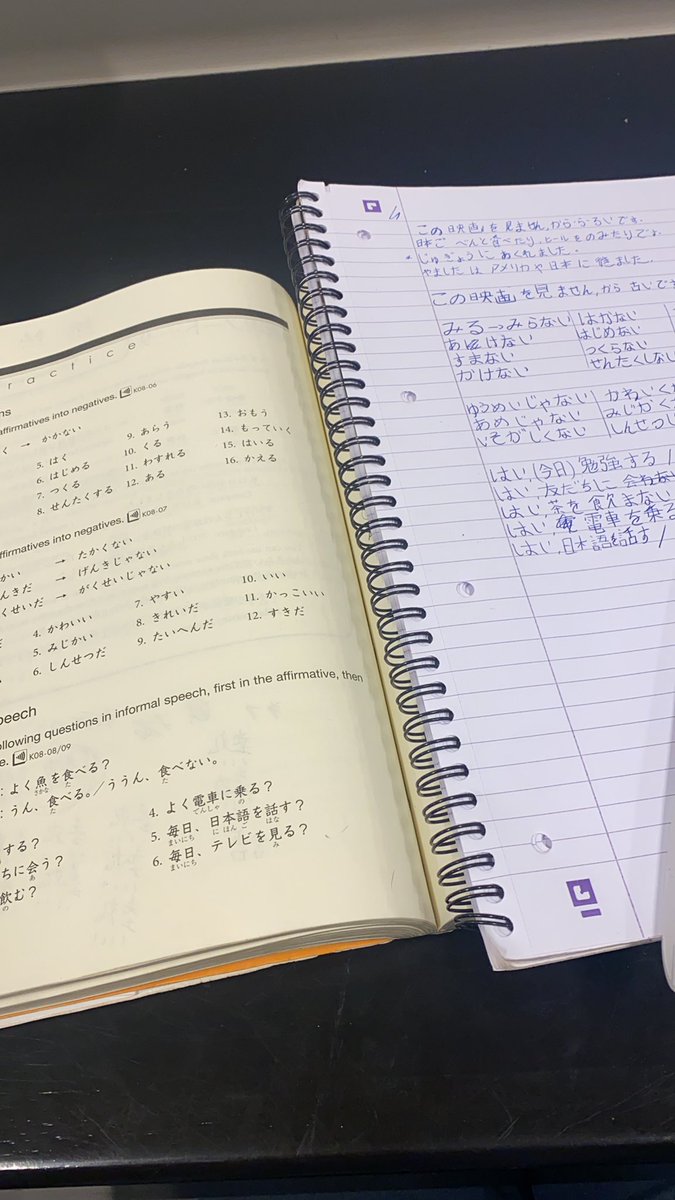 Practice
affirmatives into negatives. K08-06
く → かかない
5. はく
6. はじめる
7. つくる
8. せんたくする
9. あらう
10. くる
11. わすれる
12. ある
13. おもう
14. もっていく
15. はいる
16. かえる
affirmatives into negatives. K08-07
かい → たかくない
んきだ → げんきじゃない
くせいだ → がくせいじゃない
4. かわいい
5. みじかい
6. しんせつだ
7. やすい
8. きれいだ
9. たいへんだ
10. いい
11. かっこいい
12. すきだ
peech
ollowing questions in informal speech, first in the affirmative, then
e. K08-08/09
: よく魚を食べる?
: うん、食べる。/ううん、食べない。
する?
ちに会う?
飲む?
4. よく電車に乗る?
5. 毎日、日本語を話す?
6. 毎日、テレビを見る?
この映画を見ません,から
べんと食べたり,ビールをのみたりでょ
じゅぎょうに おくれました.
やましたは アメリカや日本に
この映画を見ません,から 古いです
みる→みらない はかない
はじめない
すまない つくらない
かけない せんたくしない
ゆうめいじゃない かわいく
あめじゃない みじかく
いそがしくない しんせつじ
はい,(今日)勉強する/
はい,友だちに
はい,茶を飲まない
はい 電車を乗る
はい,日本語を話す/